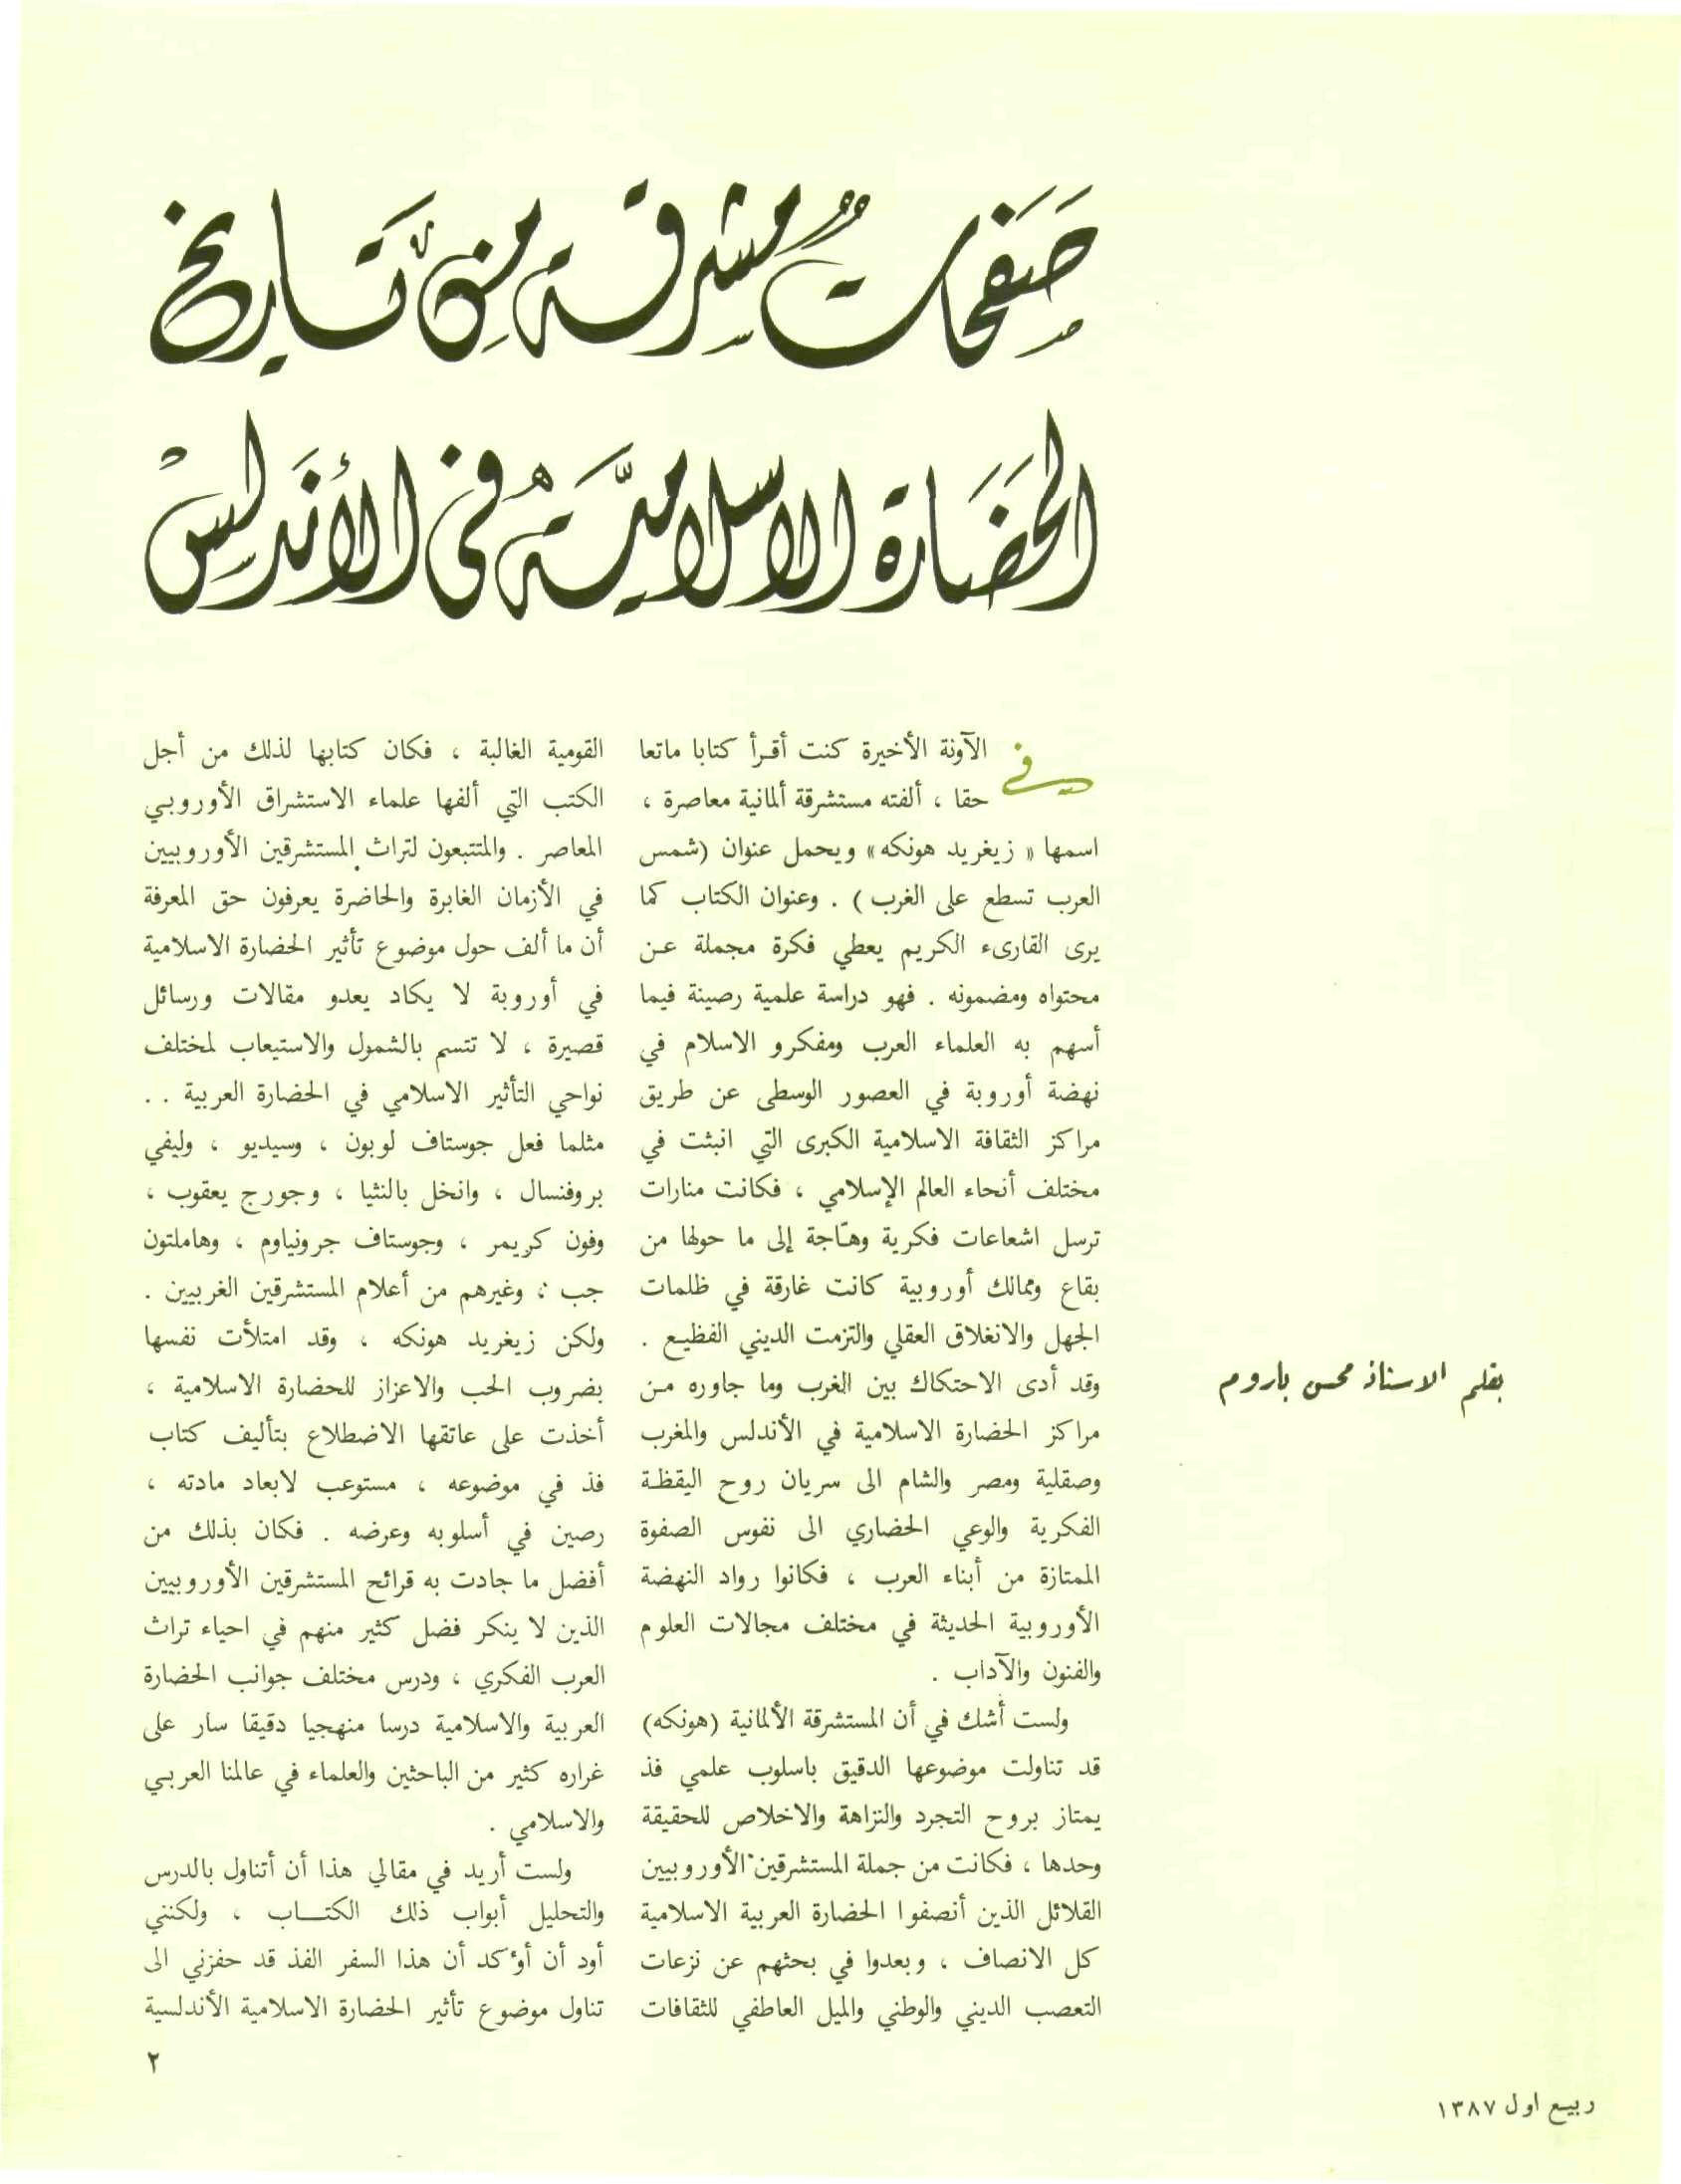 صفحات مشرقة من تاريخ
الحضارة الاسلامية في الأندلس
بقلم الاستاذ محسن باروم
في الآونة الأخيرة كنت أقرأ كتابا ماتعا
حقا ، ألفته مستشرقة ألمانية معاصرة ،
اسمها « زيغريد هونكه» ويحمل عنوان (شمس
العرب تسطع على الغرب ) . وعنوان الكتاب كما
يرى القارىء الكريم يعطي فكرة مجملة عن
محتواه ومضمونه . فهو دراسة علمية رصينة فيما
أسهم به العلماء العرب ومفكرو الاسلام في
نهضة أوروبة في العصور الوسطى عن طريق
مراكز الثقافة الاسلامية الكبرى التي انبثت في
مختلف أنحاء العالم الإسلامي ، فكانت منارات
ترسل اشعاعات فكرية وهّاجة إلى ما حولها من
بقاع وممالك أوروبية كانت غارقة في ظلمات
الجهل والانغلاق العقلي والتزمت الديني الفظيع .
وقد أدى الاحتكاك بين الغرب وما جاوره من
مراكز الحضارة الاسلامية في الأندلس والمغرب
وصقلية ومصر والشام الى سريان روح اليقظة
الفكرية والوعي الحضاري الى نفوس الصفوة
الممتازة من أبناء العرب ، فكانوا رواد النهضة
الأوروبية الحديثة في مختلف مجالات العلوم
والفنون والآداب .
ولست أشك في أن المستشرقة الألمانية (هونكه)
قد تناولت موضوعها الدقيق باسلوب علمي فذ
يمتاز بروح التجرد والنزاهة والاخلاص للحقيقة
وحدها ، فكانت من جملة المستشرقين الأوروبيين
القلائل الذين أنصفوا الحضارة العربية الاسلامية
كل الانصاف ، وبعدوا في بحثهم عن نزعات
التعصب الديني والوطني والميل العاطفي للثقافات
القومية الغالبة ، فكان كتابها لذلك من أجل
الكتب التي ألفها علماء الاستشراق الأوروبي
المعاصر . والمتتبعون لتراث المستشرقين الأوروبيين
في الأزمان الغابرة والحاضرة يعرفون حق المعرفة
أن ما ألف حول موضوع تأثير الحضارة الاسلامية
في أوروبة لا يكاد يعدو مقالات ورسائل
قصيرة ، لا تتسم بالشمول والاستيعاب لمختلف
نواحي التأثير الاسلامي في الحضارة العربية . .
مثلما فعل جوستاف لوبون ، وسيديو ، وليفي
بروفنسال ، وانخل بالنثيا ، وجورج يعقوب ،
وفون كريمر ، وجوستاف جرونياوم ، وهاملتون
جب ، وغيرهم من أعلام المستشرقين الغربيين .
ولكن زيغريد هونكه ، وقد امتلأت نفسها
بضروب الحب والاعزاز للحضارة الاسلامية ،
أخذت على عاتقها الاضطلاع بتأليف كتاب
فذ في موضوعه ، مستوعب لابعاد مادته ،
رصين في أسلوبه وعرضه . فكان بذلك من
أفضل ما جادت به قرائح المستشرقين الأوروبيين
الذين لا ينكر فضل كثير منهم في احياء تراث
العرب الفكري ، ودرس مختلف جوانب الحضارة
العربية والاسلامية درسا منهجيا دقيقا سار على
غراره كثير من الباحثين والعلماء في عالمنا العربي
والاسلامي .
ولست أريد في مقالي هذا أن أتناول بالدرس
والتحليل أبواب ذلك الكتــاب ، ولكنني
أود أن أؤكد أن هذا السفر الفذ قد حفزني الى
تناول موضوع تأثير الحضارة الاسلامية الأندلسية
٢
ربيع اول ١٣٨٧